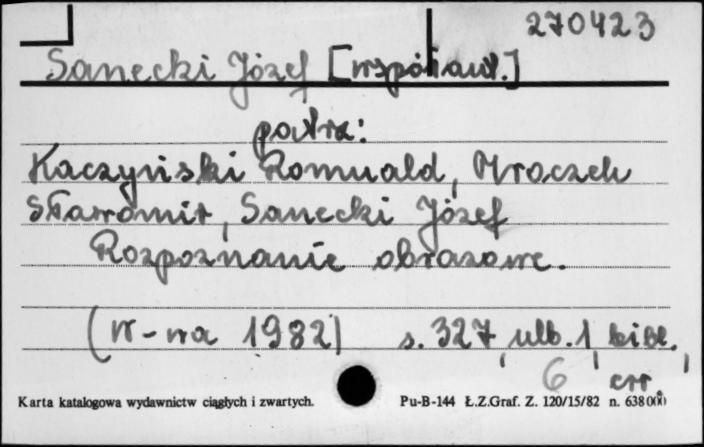 270423
Sanecki Józef [współaut.]
patrz:
Kaczyński Romuald, Mroczek
Sławomir, Sanecki Józef
Rozpoznanie obrazowe.
(W-wa 1982) s. 327, ulb. 1, bibl.,
6 err
Karta katalogowa wydawnictw ciągłych i zwartych. Pu-B-144 Ł.Z.Graf. Z. 120/15/82 n. 638000